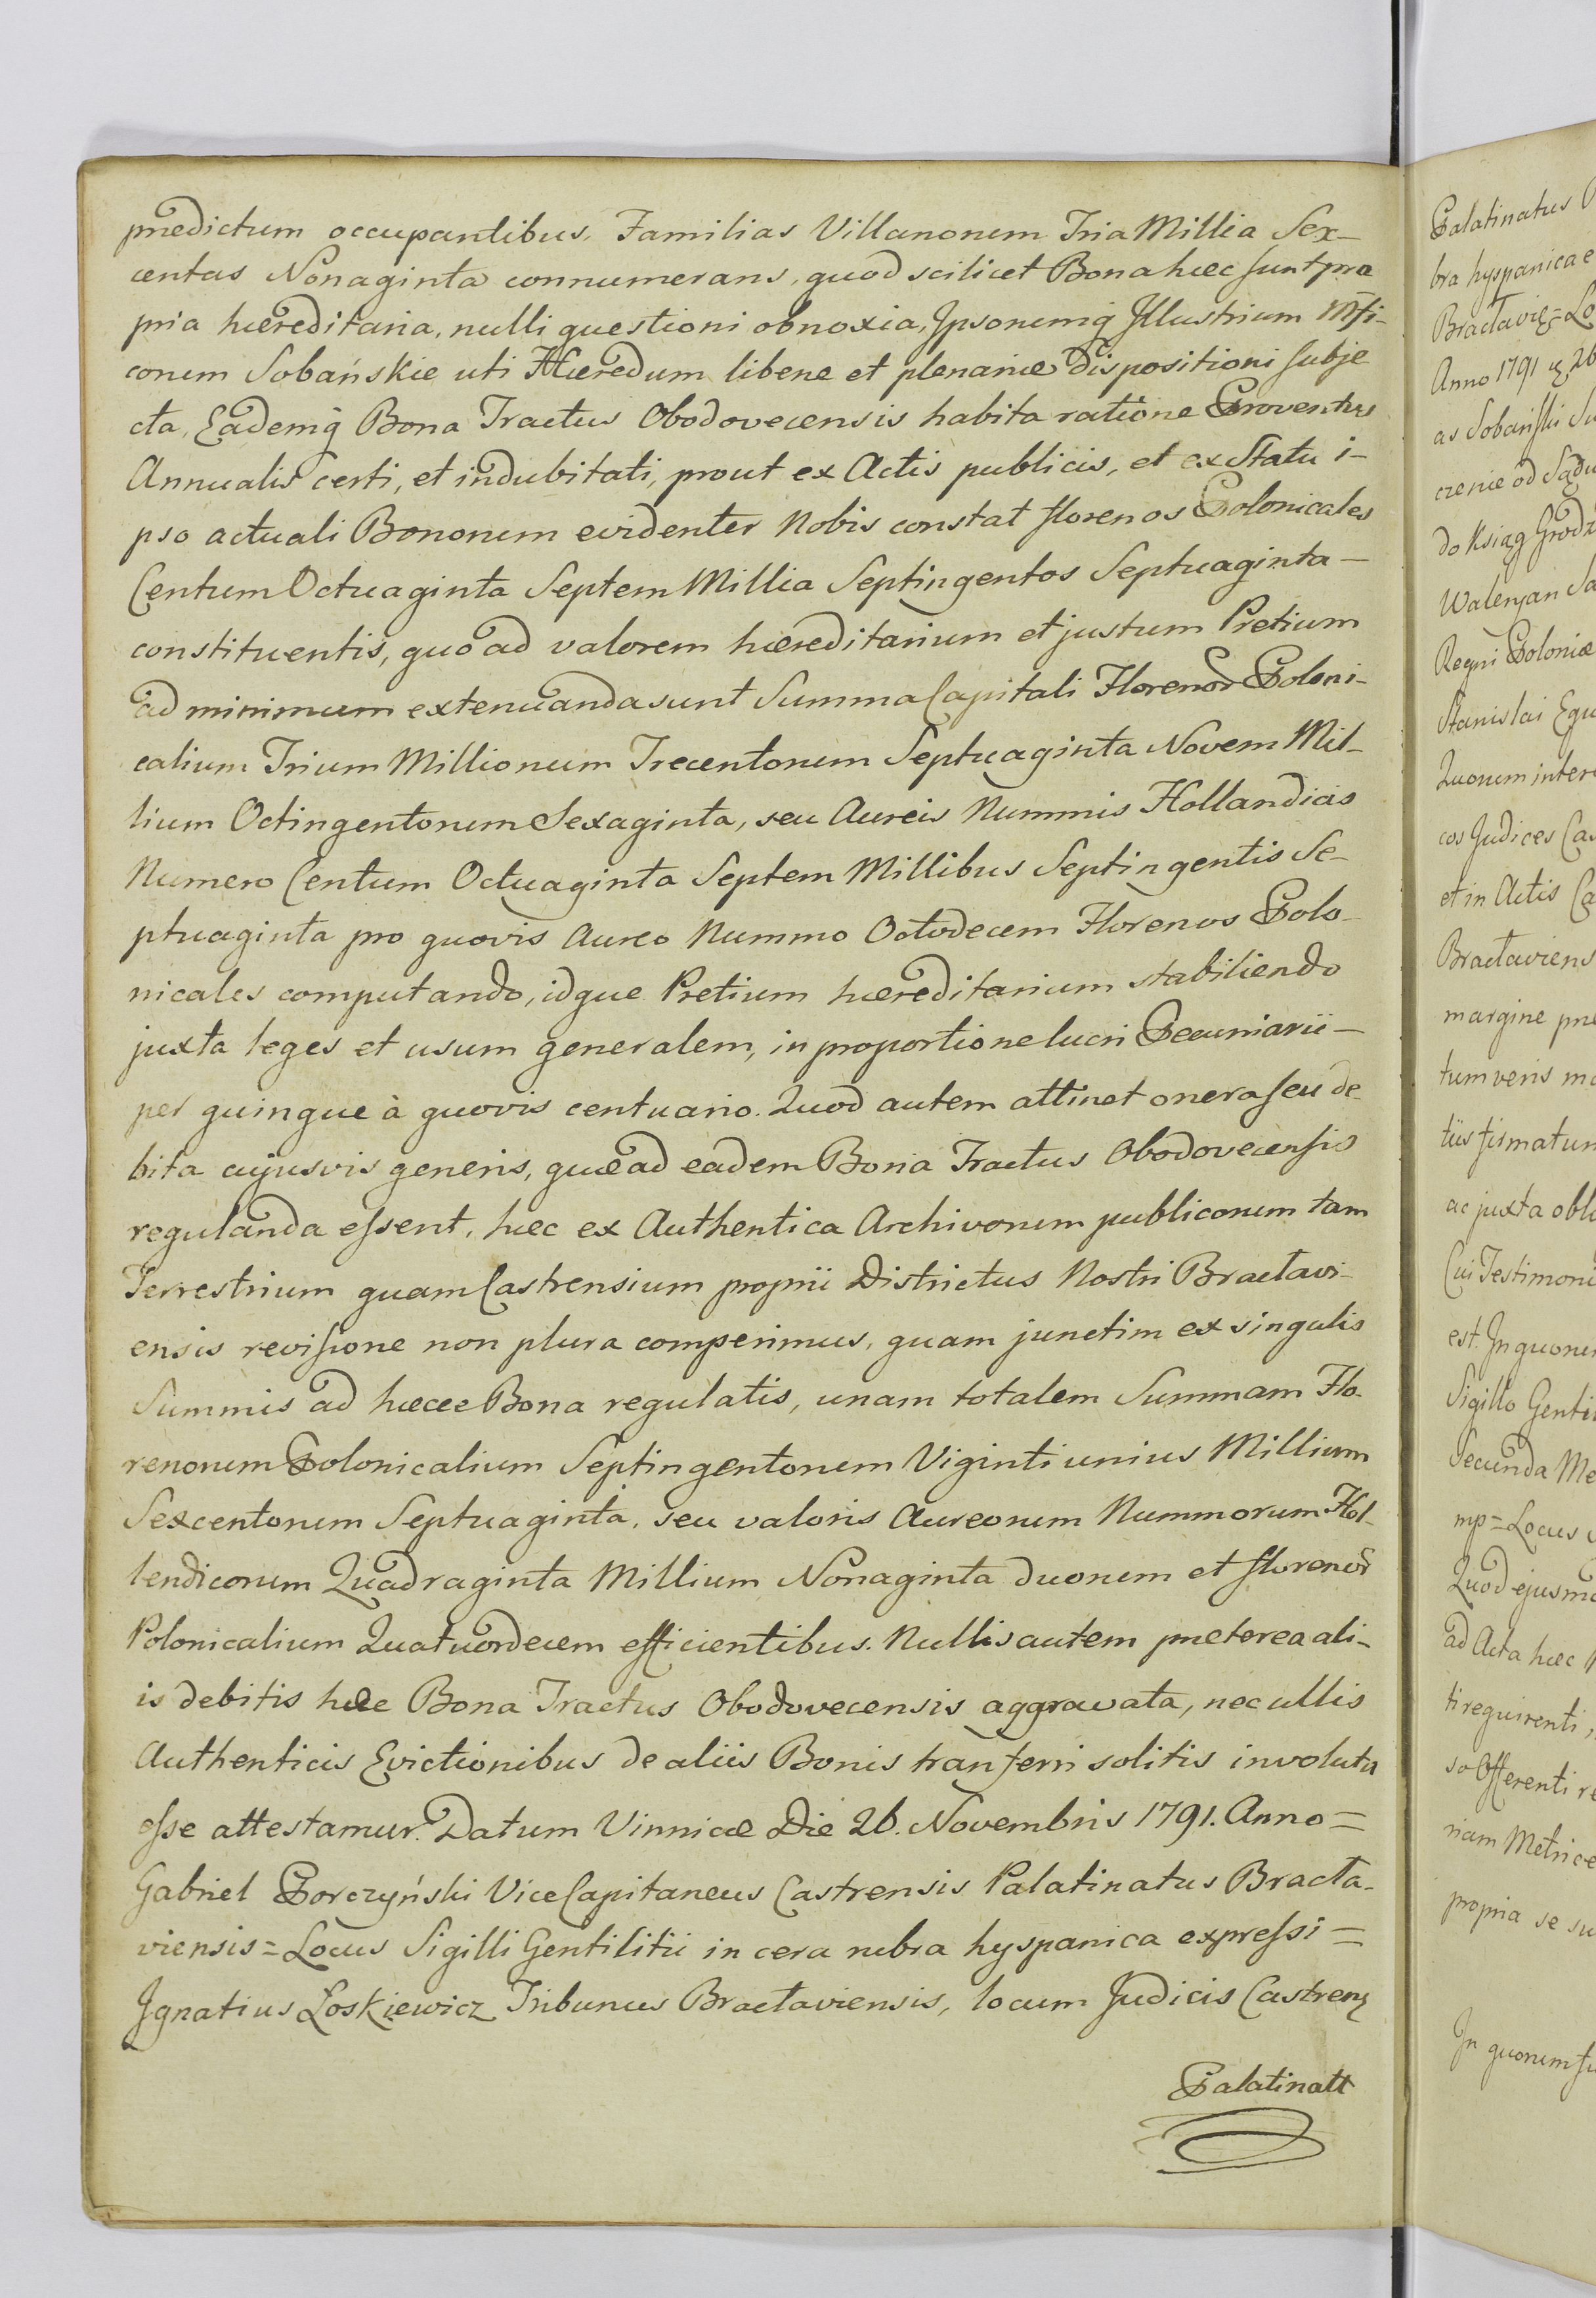 prædictum occupantibus, Familias Villanorum Tria Millia Sex-
centas Nonaginta connumerans, quod scilicet Bona hæc sunt pro
pria hæreditaria, nulli questioni obnoxia, Ipsorumq̃ Illustrium Mfi-
corum Sobańskie uti Hæredum liberæ et plenariæ dispositioni subje
cta, Eademq̃ Bona Tractus Obodovecensis habita ratione Proventus
Annualis certi, et indubitati, prout ex Actis publicis, et ex Statu i-
pso actuali Bonorum evidenter Nobis constat florenos Polonicales
Centum Octuaginta Septem Millia Septingentos Septuaginta-
constituentis, quo ad valorem hæreditarium et justum Pretium
ad minimum extenuanda sunt Summa Capitali Florenor Poloni-
calium Trium Millionum Trecentorum Septuaginta Novem Mil-
lium Octingentorum Sexaginta, seu Aureis Nummis Hollandicis
Numero Centum Octuaginta Septem Millibus Septingentis Se-
ptuaginta pro quovis Aureo Nummo Octodecem Florenos Polo-
nicales computando, idque Pretium hæreditarium stabiliendo
juxta leges et usum generalem, in proportione lucri Pecuniarii-
per quinque à quovis centuario. Quod autem attinet onera seu de-
bita cujusvis generis, quæ ad eadem Bona Tractus Obodovecensis
regulanda essent, hæc ex Authentica Archivorum publicorum tam
Terrestrium quam Castrensium proprii Districtus Nostri Bractavi-
ensis revisione non plura comperimus, quam junctim ex singulis
Summis ad hæcce Bona regulatis, unam totalem Summam Flo-
renorum Polonicalium Septingentorum Viginti unius Millium
Sexcentorum Septuaginta, seu valoris Aureorum Nummorum Hol-
lendicorum Quadraginta Millium Nonaginta duorum et florenor
Polonicalium Quatuordecem efficientibus. Nullis autem præterea ali-
is debitis hæc Bona Tractus Obodovecensis aggravata, nec ullis
Authenticis Evictionibus de aliis Bonis tranferri solitis involuta
esse attestamur. Datum Vinnicæ Die 26. Novembris 1791. Anno=
Gabriel Porczyński Vice Capitaneus Castrensis Palatinatus Bracta-
viensis= Locus Sigilli Gentilitii in cera rubra hyspanica expressi=
Ignatius Łoskiewicz Tribunus Bractaviensis, locum Judicis Castren
Palatinatt
Palatinatus
bra hyspanicae
Bractavię= Lo
Anno 1791 26
as Sobański Su
czenie od Sądu
do Ksiąg Grodz
Waleryan Sa
Regni Poloniæ
Stanislai Equ
Quorum intere
cos Judices Cas
et in Actis Ca
Bractaviens
margine præ
tum veris ma
tiis firmatum
ac juxta obl
Cui Testimoni
est. In quorum
Sigillo Gentil
Secunda Me
mp= Locus
Quod ejusmo
ad Acta hæc
ti requirenti
so Offerenti re
riam Metrice
propria se su
In quorum fi